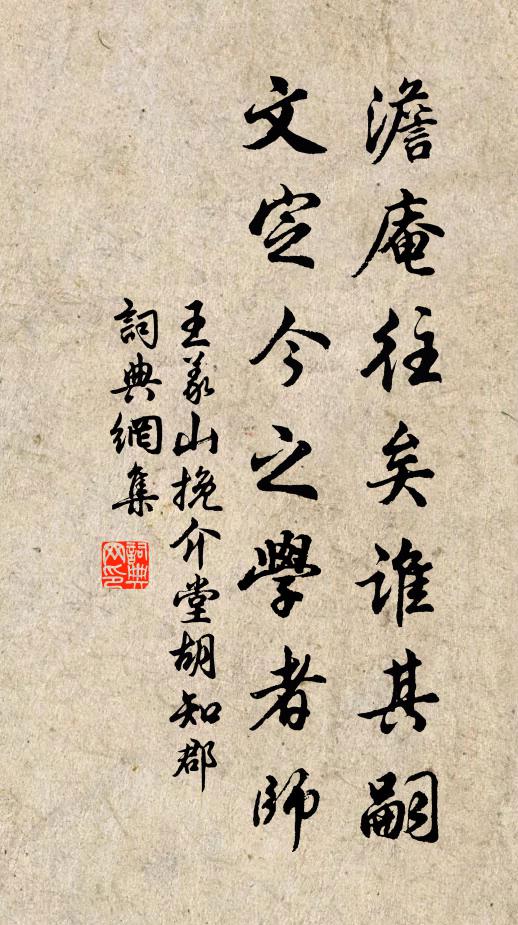 澹庵往矣誰其嗣
文定今之學者師
王義山挽介堂胡知郡
詞典網集
詞典网印